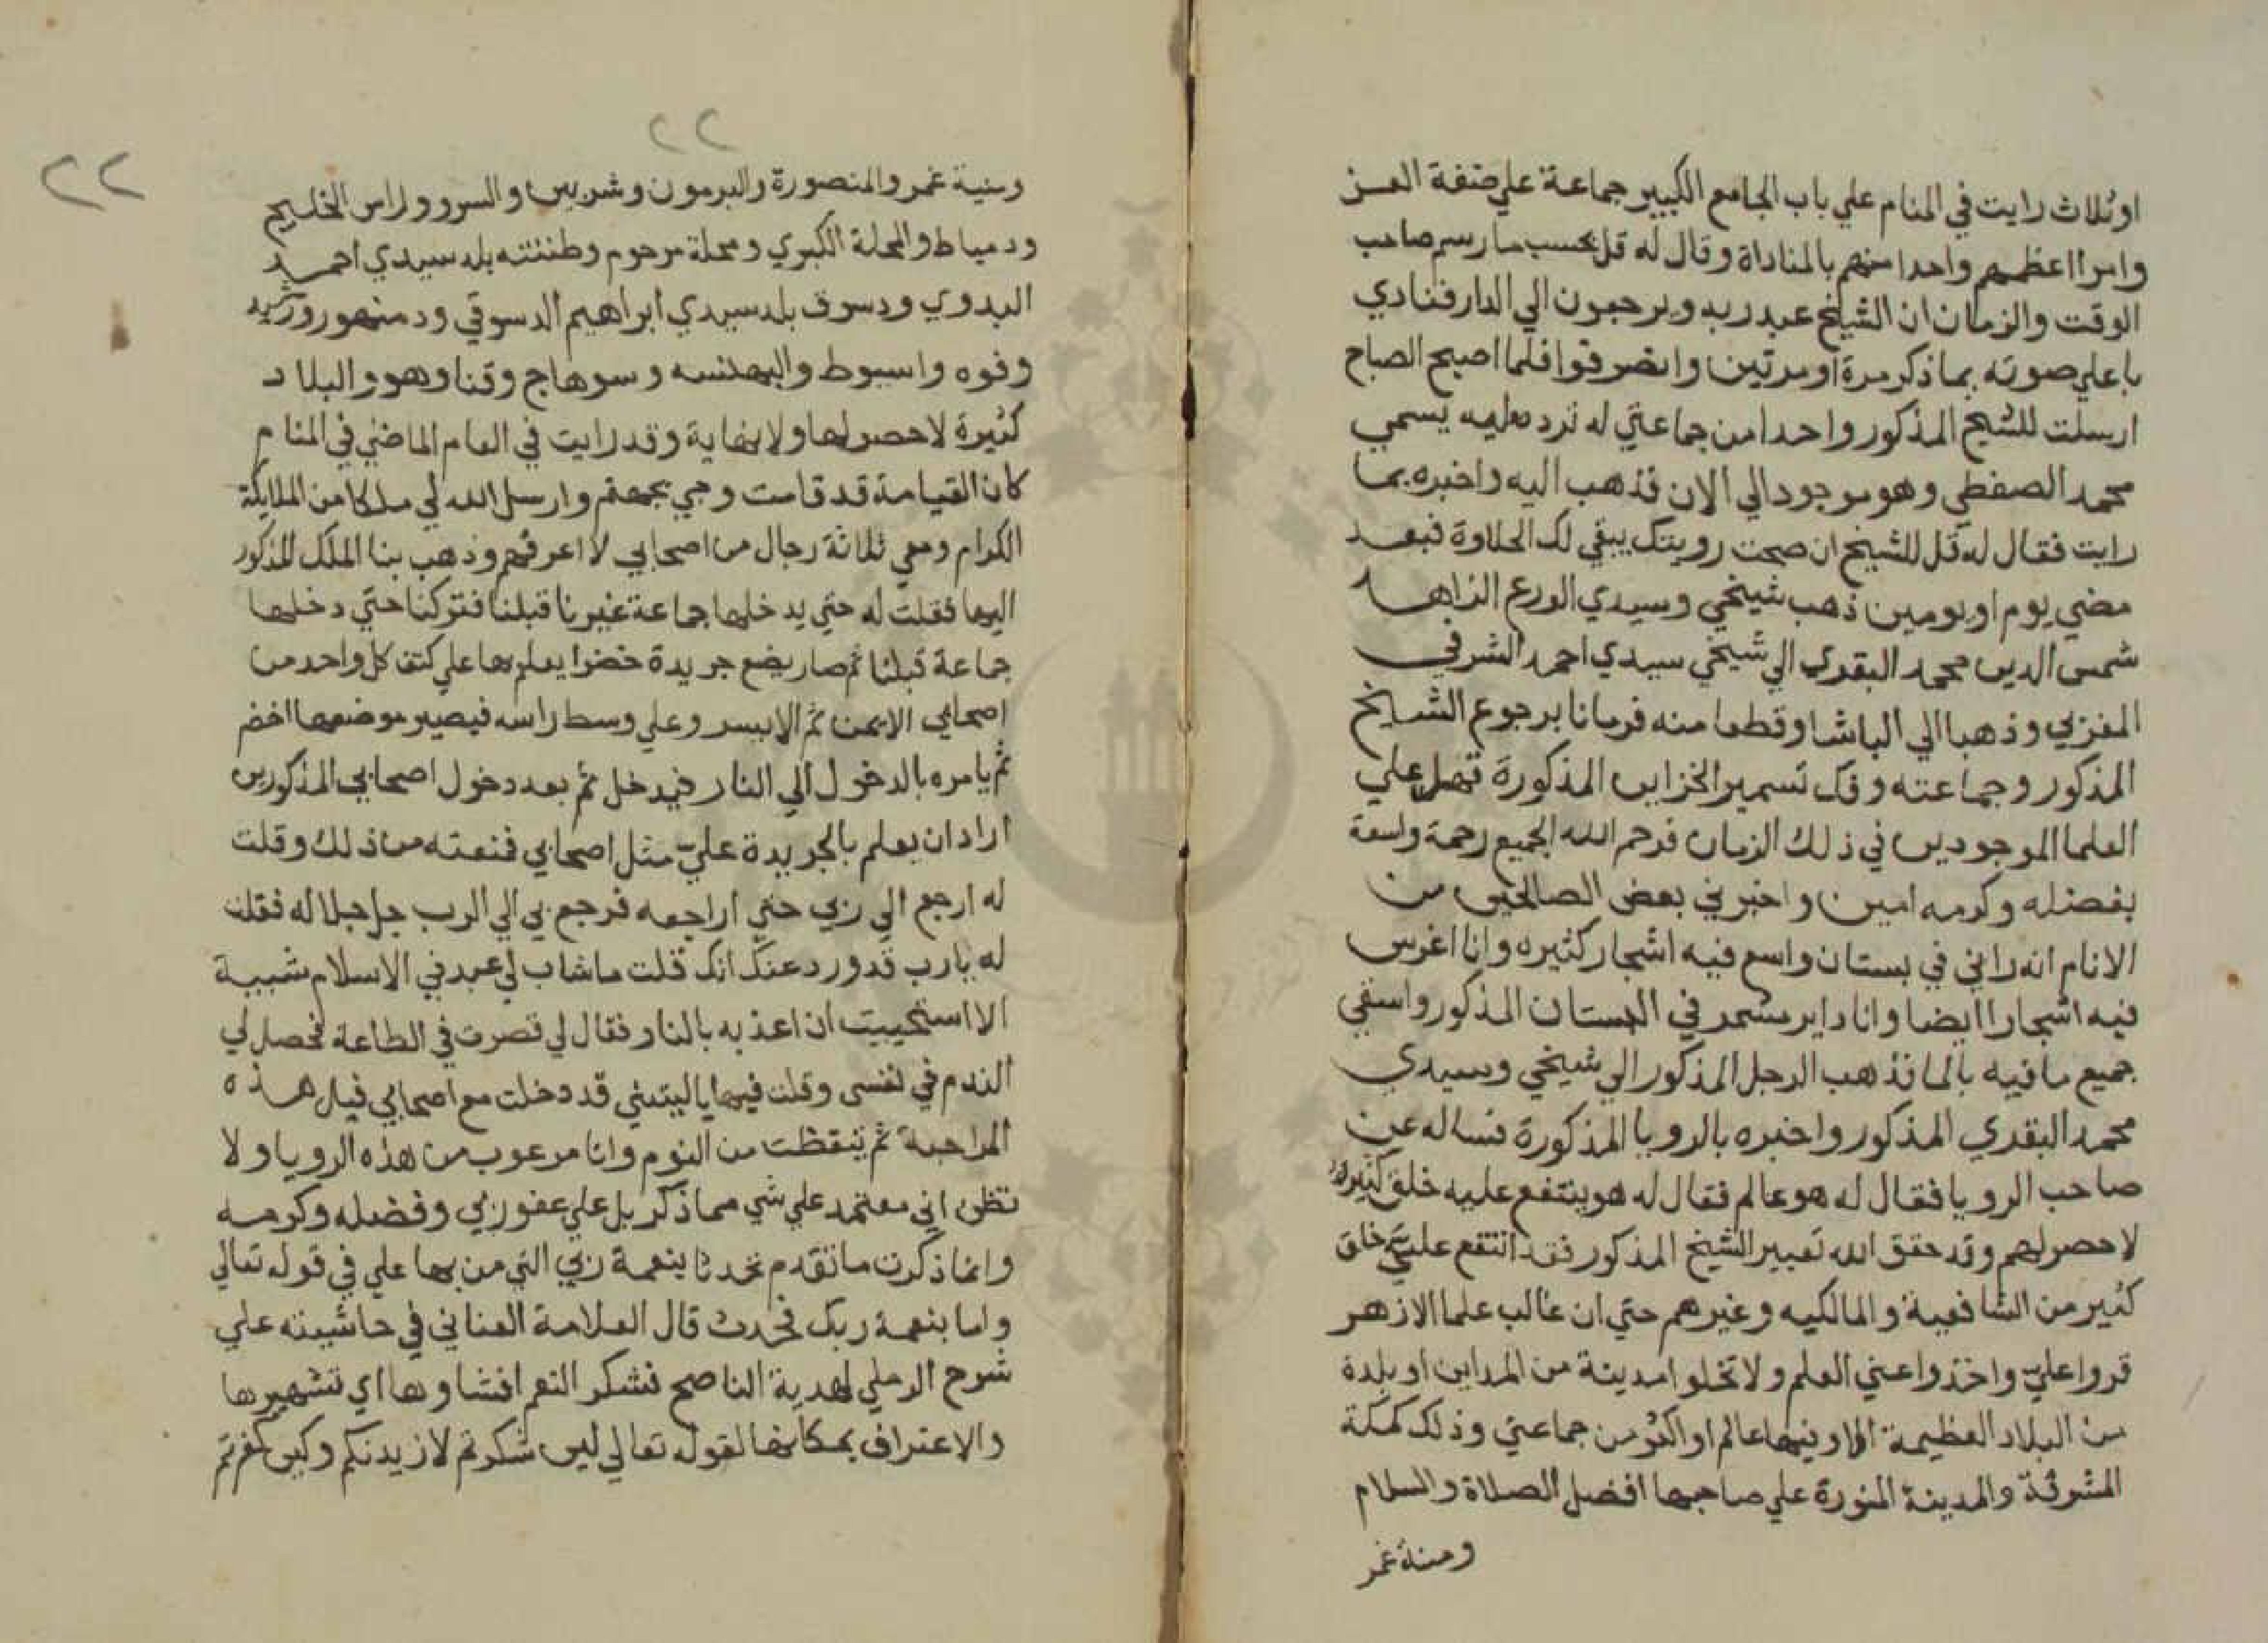 او ثلاث رايت في المنام علي باب الجامع الكبير جماعة علي صفة العز
وامرا اعظمهم واحدا منهم بالمناداة وقال له قل بحسب ما رسم صاحب
الوقت والزمان ان الشيخ عبد ربه ويرجعون الي الدار فنادي
باعلي صوته بما ذكر مرة او مرتين وانصرفوا فلما اصبح الصباح
ارسلت للشيخ المذكور واحدا من جماعتي له تردد عليه يسمي
محمد الصفطي وهو موجود الي الان فذهب اليه واخبره بما
رايت فقال له قل للشيخ ان صحت رويتك يبقي لك الحلاوة فبعد
مضي يوم او يومين ذهب شيخي وسيدي الورع الزاهد
شمس الدين محمد البقري الي شيخي سيدي احمد الشرفي
المغربي وذهبا الي الباشا وقطعا منه فرمانا برجوع الشيخ
المذكور وجماعته وفك تسمير الخزاين المذكورة علي
العلما الموجودين في ذلك الزمان فرحم الله الجميع رحمة واسعة
بفضله وكرمه امين واخبرني بعض الصالحين من
الانام انه راني في بستان واسع فيه اشجار كثيره وانا اغرس
فيه اشجارا ايضا وانا داير مشمر في البستان المذكور واسقي
جميع ما فيه بالما فذهب الرجل المذكور الي شيخي وسيدي
محمد البقري المذكور واخبره بالرويا المذكورة فساله عن
صاحب الرويا فقال له هو عالم فقال له هو ينتفع عليه خلق كثيرة
لا حصر لهم وقد حقق الله تعبير الشيخ المذكور فقد انتفع عليّ خلق
كثير من الشافعية والمالكيه وغيرهم حتي ان غالب علما الازهر
قروا عليّ واخذوا عني العلم ولا تخلوا مدينة من المداين او بلدة
من البلاد العظيمة الا وفيها عالم او اكثر من جماعتي وذلك كمكة
المشرفة والمدينة المنورة علي صاحبها افضل الصلاة والسلام
ومنية غمر
٢٢
٢٢
ومنية غمر والمنصورة والبرمون وشربين والسرو ولراس الخليج
ودمياط والمحلة الكبري ومحلة مرحوم وطنتته بلد سيدي احمد
البدوي ودسوق بلد سيدي ابراهيم الدسوقي ودمنهور ورشيد
وفوه واسيوط والبهنسه وسوهاج وقنا وهو والبلاد
كثيرة لا حصر لها ولا نهاية وقد رايت في العام الماضي في المنام
كان القيامة قد قامت وجي بجهنم وارسل الله لي ملكا من الملايكة
الكرام ومعي ثلاثة رجال من اصحابي لا اعرفهم وذهب بنا الملك المذكور
اليها فقلت له حتي يدخلها جماعة غيرنا قبلنا فتركنا حتي دخلها
جماعة قبلنا ثم صار يضع جريدة خضرا يعلم بها علي كتف كل واحد من
اصحابي الايمن ثم الايسر وعلي وسط راسه فيصير موضعها اخضر
ثم يامره بالدخول الي النار فيدخل ثم بعد دخول اصحابي المذكورين
اراد ان يعلم بالجريدة عليّ مثل اصحابي فمنعته من ذلك وقلت
له ارجع الي ربي حتي اراجعه فرجع بي الي الرب جل جلاله فقلت
له يارب قد ورد عنك انك قلت ما شاب لي عبد في الاسلام شيبة
الا استحييت ان اعذبه بالنار فقال لي قصرت في الطاعة فحصل لي
الندم في نفسي وقلت فيها ياليتني قد دخلت مع اصحابي قبل هذه
المراجعة ثم تيقظت من النوم وانا مرعوب من هذه الرويا ولا
تظن اني معتمد علي شي مما ذكر بل علي عفو ربي وفضله وكرمه
وانما ذكرت ما تقدم تحدثا بنعمة ربي التي من بها علي في قوله تعالي
واما بنعمة ربك فحدث قال العلامة العناني في حاشيته علي
شرح الرملي لهدية الناصح فشكر النعم افشاوها اي تشهيرها
والاعتراف بمكانها لقوله تعالي لين شكرتم لازيدنكم ولين كفرتم